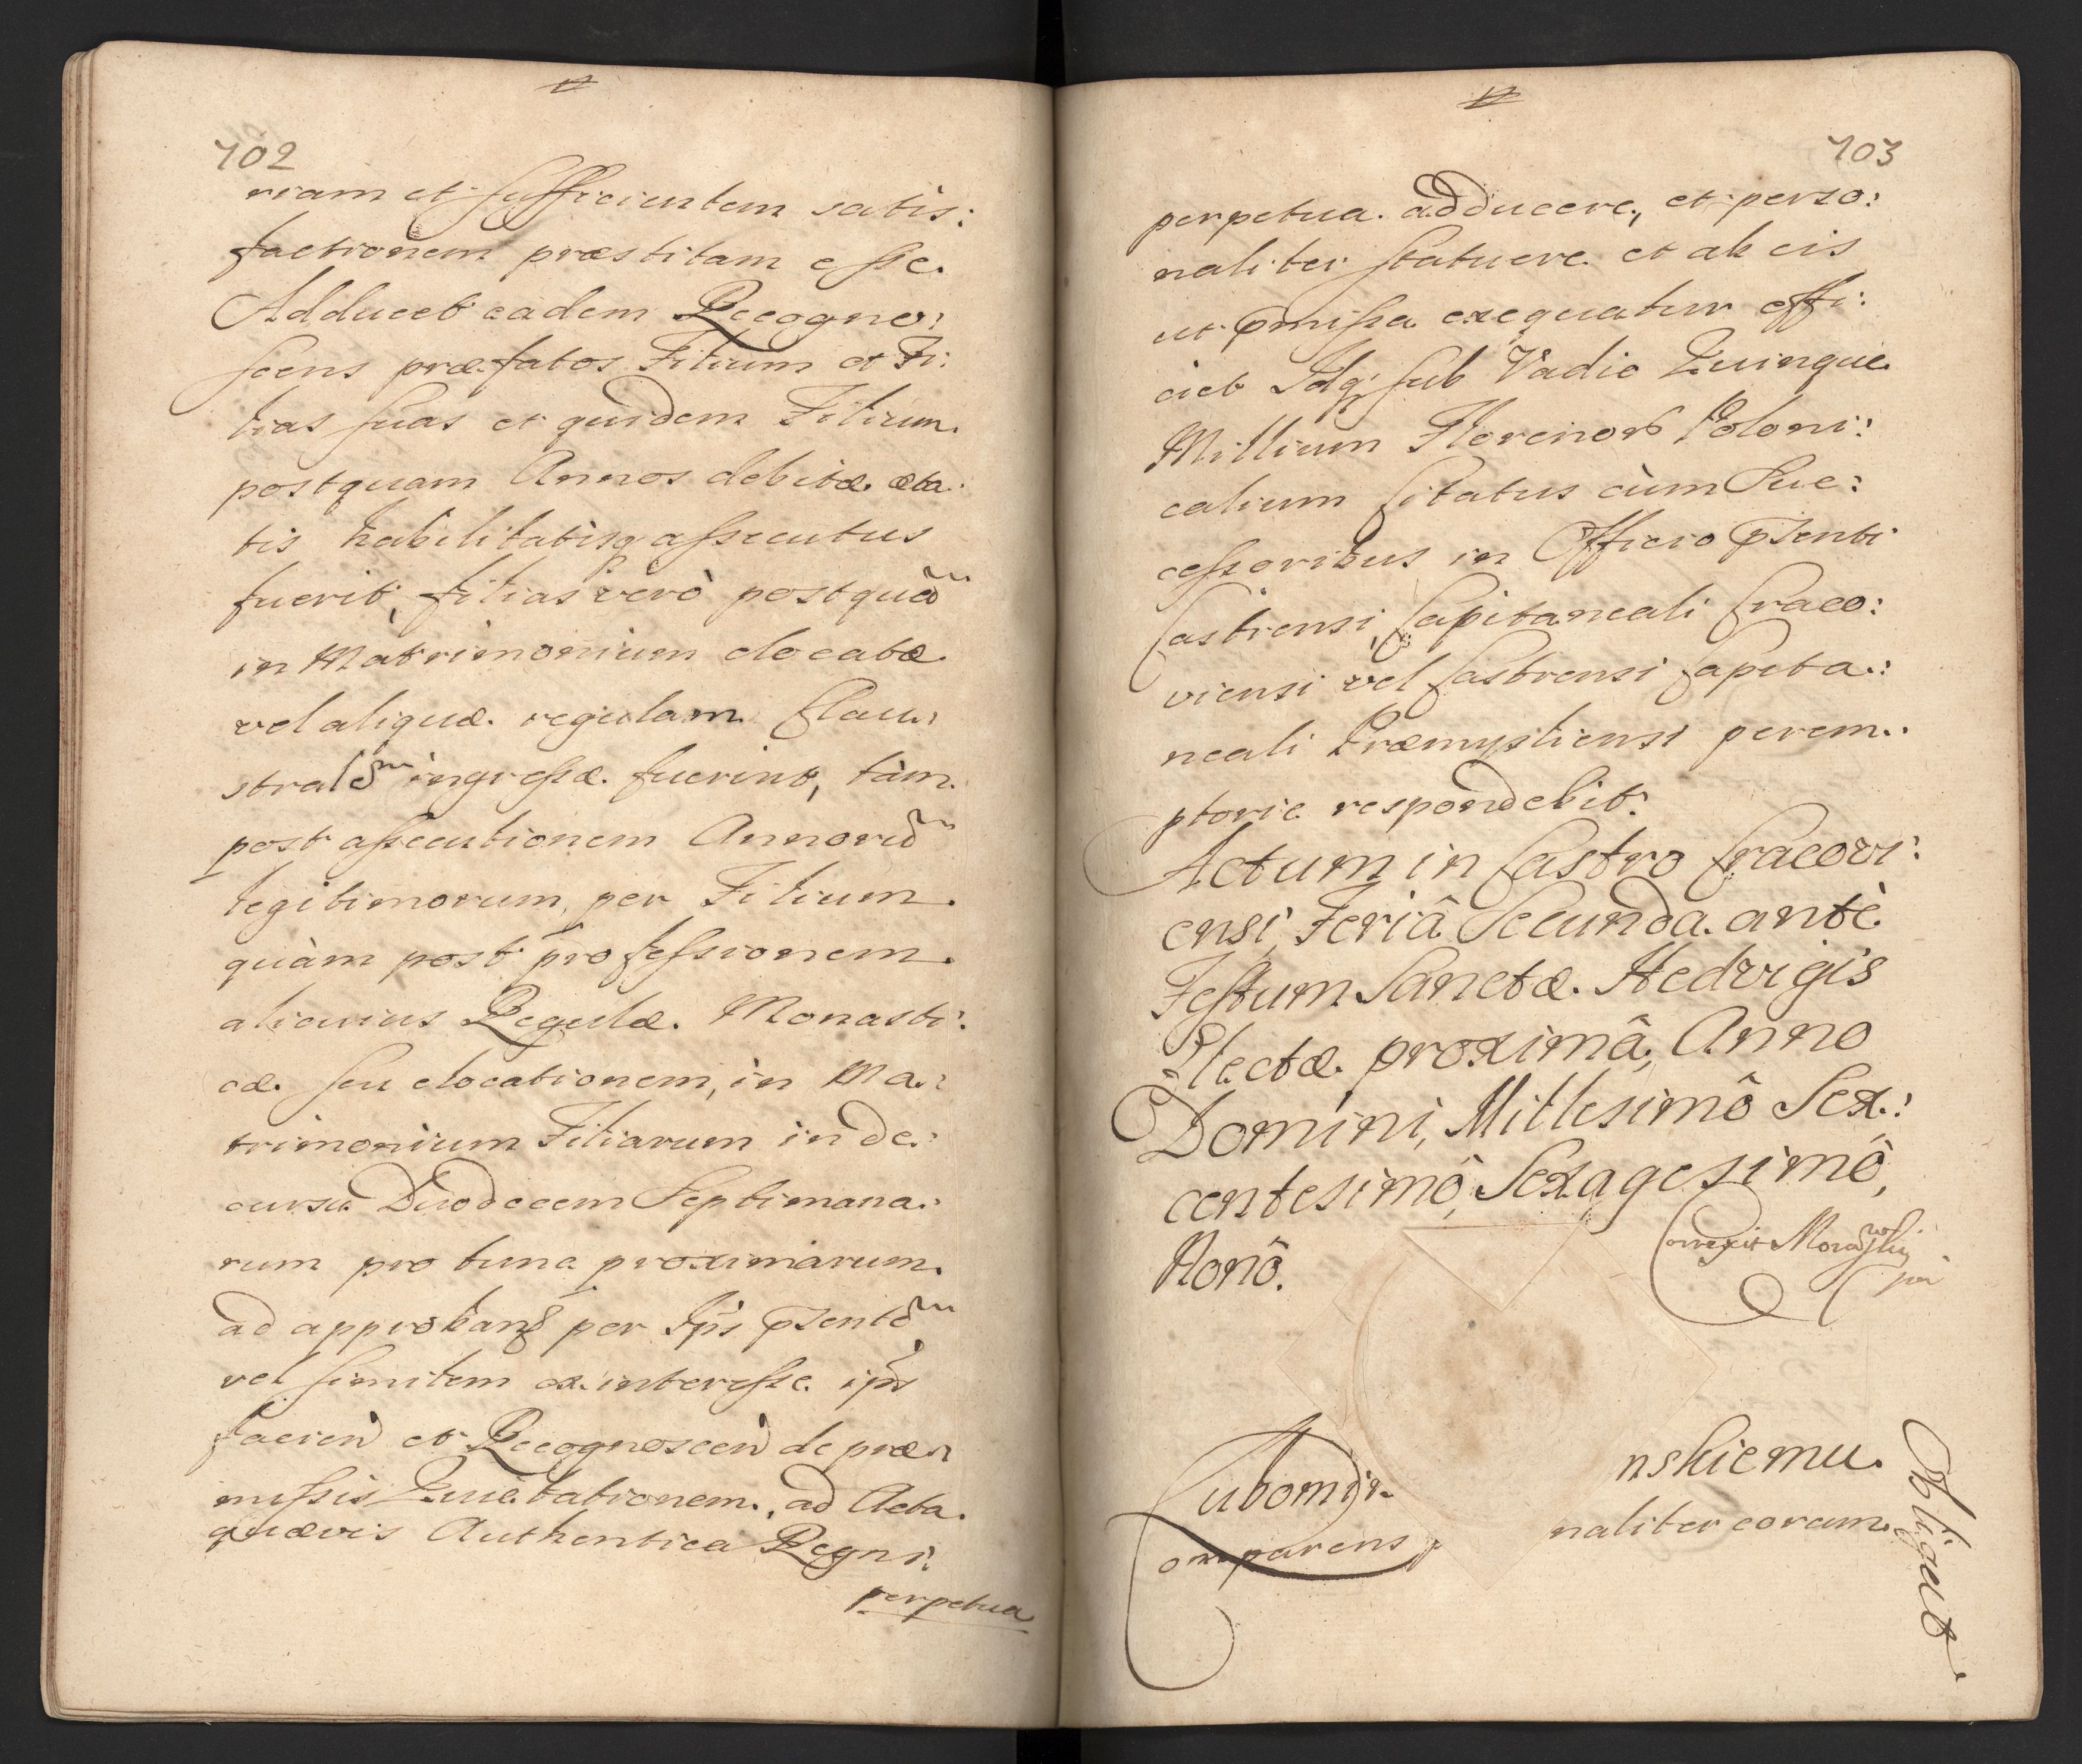 102
riam et sufficientem satis:
factionem præstitam esse.
Adducet eadem Recogno:
scens præfatos Filium et Fi:
lias suas et quidem Filium.
postquam Annos debitæ æta:
tis habilitatisq assecutus
fuerit, filias verò postquã
in Matrimonium elocatæ
vel aliquæ. regulam Clau:
stralem ingressæ. fuerint, tàm
post assecutionem Annorum
legitimorum, per Filium.
quàm post professionem.
alicuius Regulæ. Monasti:
cæ. seu elocationem, in Ma:
trimonium Filiarum in de:
cursu Duodecem Septimana:
rum pro tunc proximarum.
ad approband per Ips psentem
vel similem ex interesse ips
facien et Recognoscen de præ:
missis Quietationem, ad Acta.
quævis Authentica Regni.
perpetua
103
perpetua. adducere, et perso:
naliter statuere et ab eis
ut pmissa exequatur effi:
ciet Idq sub Vadio Quinque
Millium Florenor Poloni:
calium Citatus cùm Suc:
cessoribus in Officio psenti
Castrensi, Capitaneali Craco:
viensi vel Castrensi Capita:
neali Præmysliensi perem:
ptorie respondebit.
Actum in Castro Cracovi:
ensi, Feriâ Secunda. antè
Festum Sanctæ. Hedvigis
Electæ. proximâ, Anno
Domini, Millesimô Sex:
centesimô, Sexagesimô,
Nonô.
Correxit
Lubomir nskiemu.
omparens naliter coram.
Obligat